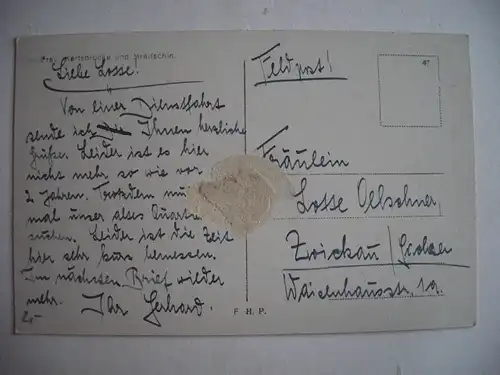 Karlsbrücke und Hradschin.
Liebe Losse!
Von einer Dienstfahrt
sende ich Ihnen herzliche
Grüße. Leider ist es hier
nicht mehr so wie vor
2 Jahren. Trotzdem
mal unser altes
suchen. Leider ist die Zeit
hier sehr kurz bemessen.
Im nächsten Brief wieder
mehr. Ihr Gerhard.
2,-
F. H. P.
Feldpost!
Fräulein
Losse Oelschner,
Zwickau / Sachsen
Waisenhausstr. 19.